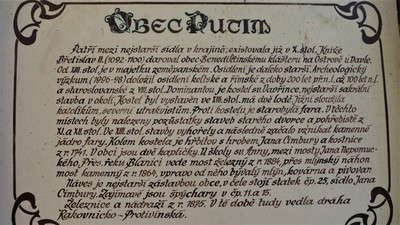 Obec Putim
Patří mezi nejstarší sídla v krajině; existovala již v X. stol. Kníže
Břetislav II. (1092-1100) daroval obec Benediktinskému klášteru na Ostrově u Davle.
Od XIII. stol. je v majetku zeměpanském. Osídlení je daleko starší. Archeologický
výzkum (1996-98) doložil osídlení keltské a římské z doby 200 let př. n. l. až 100 let n. l.
a staroslovanské z VIII. stol. Dominantou je kostel sv. Vavřince, nejstarší sakrální
stavba v okolí. Kostel byl vystavěn ve XIII. stol., má dvě lodě. Jižní sloužila
katolíkům, severní utrakvistům. Proti kostelu je starobylá fara. V těchto
místech byly nalezeny pozůstatky staveb starého dvorce a pohřebiště z
XI. a XII. stol. Ve XIII. stol. stavby vyhořely a následně začalo vznikat kamenné
jádro fary. Kolem kostela je hřbitov s hrobem Jana Cimbury a kostnice
z r. 1741. V obci jsou dvě kapličky. U školy sv. Anny, mezi mosty Jana Nepomuc-
kého. Přes řeku Blanici vede most železný z r. 1894, přes mlýnský náhon
most kamenný z r. 1864, vpravo od něho bývalý mlýn, kovárna a pivovar.
Náves je nejstarší zástavbou obce, v čele stojí statek čp. 25, sídlo Jana
Cimbury. Zajímavé jsou špýchary v čp. 11. a 15.
Železnice a nádraží z r. 1875. V té době tudy vedla dráha
Rakovnicko-Protivínská.